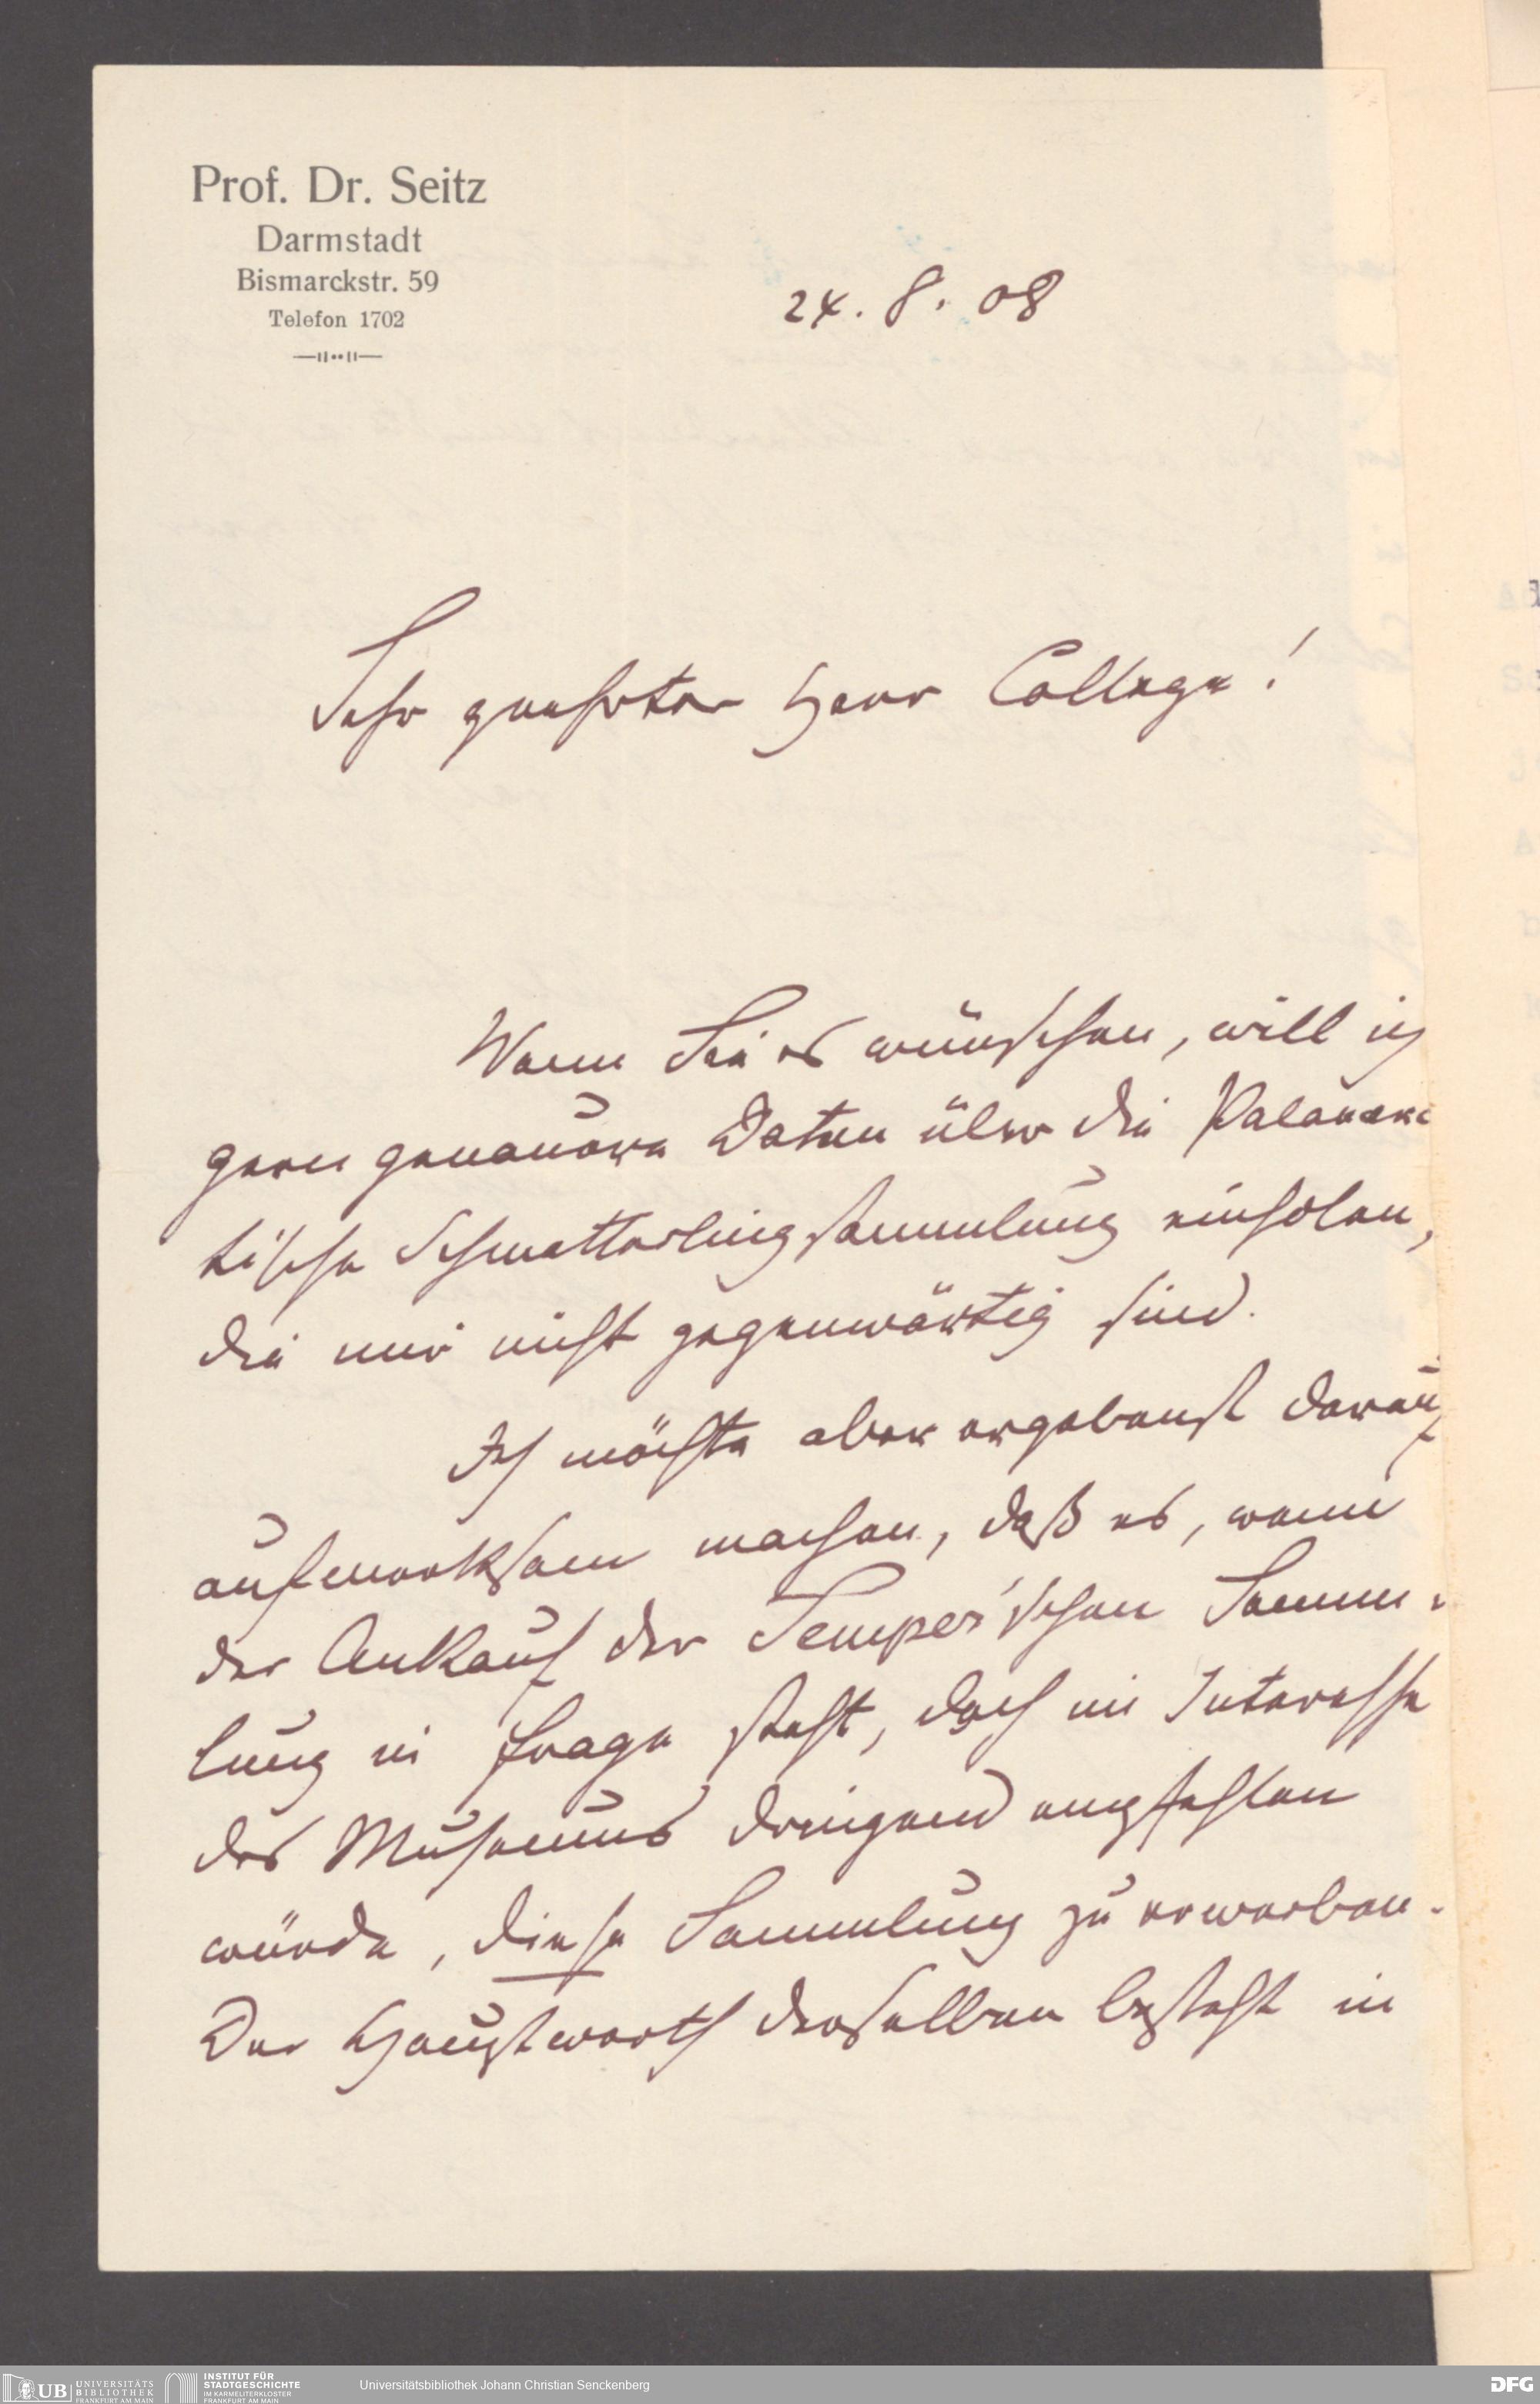 Prof. Dr. Seitz
Darmstadt
Bismarckstr. 59
Telefon 1702
24. 8. 08
Sehr geehrter Herr College!
Wenn Sie es wünschen, will ich
gern genauere Daten über die Palaeark-
tische Schmetterlingssammlung einholen,
die mir nicht gegenwärtig sind.
Ich möchte aber ergebenst darauf
aufmerksam machen, daß es, wenn
der Ankauf der Semper'schen Samm-
lung in Frage steht, doch im Interesse
des Museums dringend empfehlen
würde, diese Sammlung zu erwerben.
Der Hauptwerth derselben besteht in
UB UNIVERSITÄTS
BIBLIOTHEK
FRANKFURT AM MAIN
INSTITUT FÜR
STADTGESCHICHTE
IM KARMELITERKLOSTER
FRANKFURT AM MAIN
Universitätsbibliothek Johann Christian Senckenberg
DFG